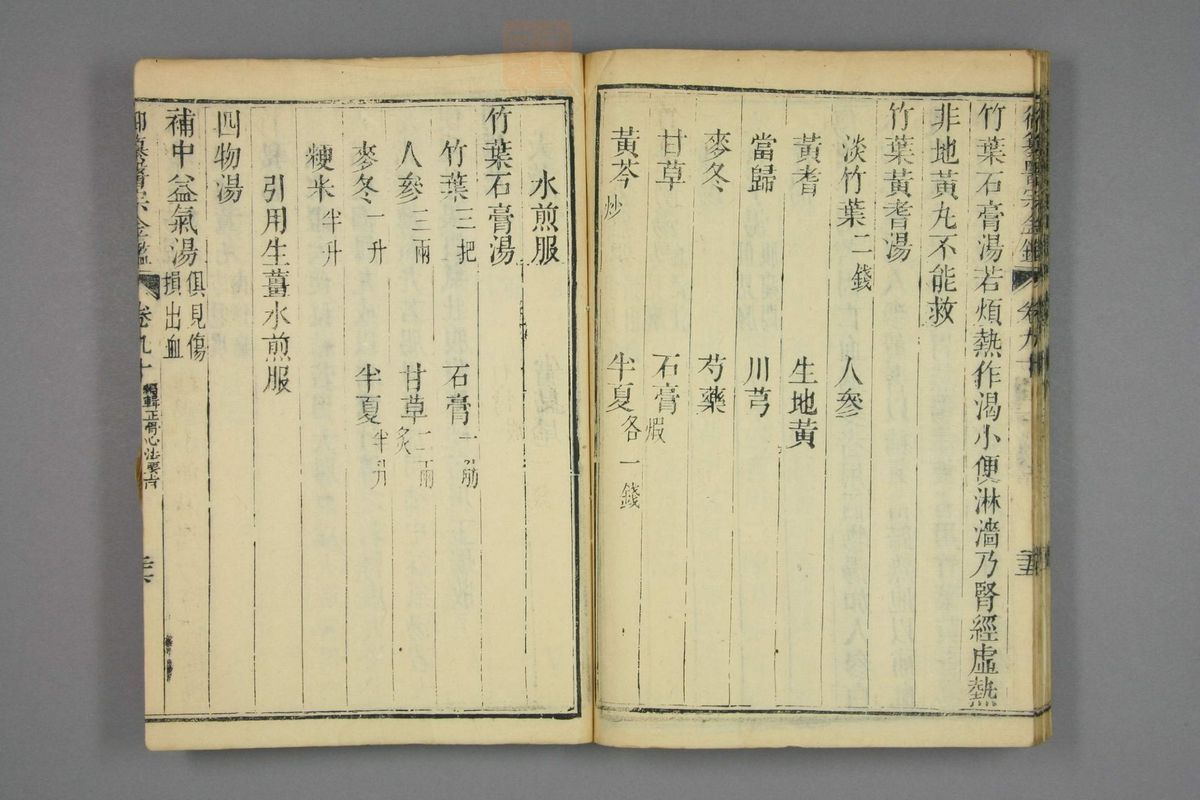 竹葉石膏湯若煩熱作渴小便淋濇乃腎經虛熱
非地黃丸不能救
竹葉黃耆湯
淡竹葉二錢 人參
黃耆 生地黃
當歸 川芎
麥冬 芍藥
甘草 石膏煆
黃芩炒 半夏各一錢
水煎服
竹葉石膏湯
竹葉三把 石膏一觔
人參三兩 甘草炙二兩
麥冬一升 半夏半升
粳米半升
引用生薑水煎服
四物湯
補中益氣湯俱見傷損出血
御纂醫宗金鑑 卷九十 編輯正骨心法要旨